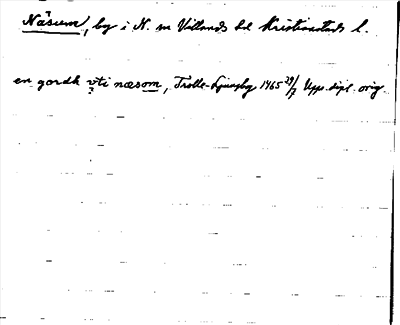 Näsum, by i N. sn Villands hd Kristianstads l.
en gardh vti næsom, Trolle-Ljungby 1465 29/7 Upps. dipl. orig.